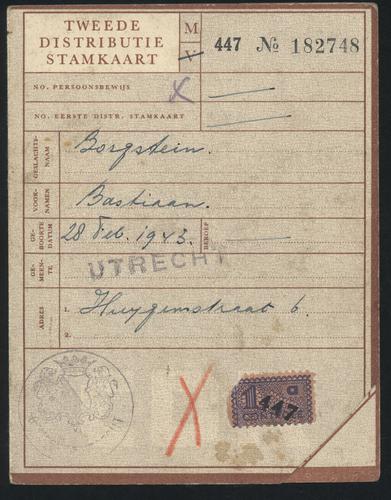 TWEEDE
DISTRIBUTIE
STAMKAART
M
V
447 № 182748
NO. PERSOONSBEWIJS
X
NO. EERSTE DISTR. STAMKAART
GESLACHTS-
NAAM
Borgstein.
VOOR-
NAMEN
Bastiaan.
GE-
BOORTE
DATUM
28 Feb. 1943.
BEROEP
GE-
MEEN-
TE
UTRECHT
ADRES
1. Huygenstraat 6.
2.
X
447
a